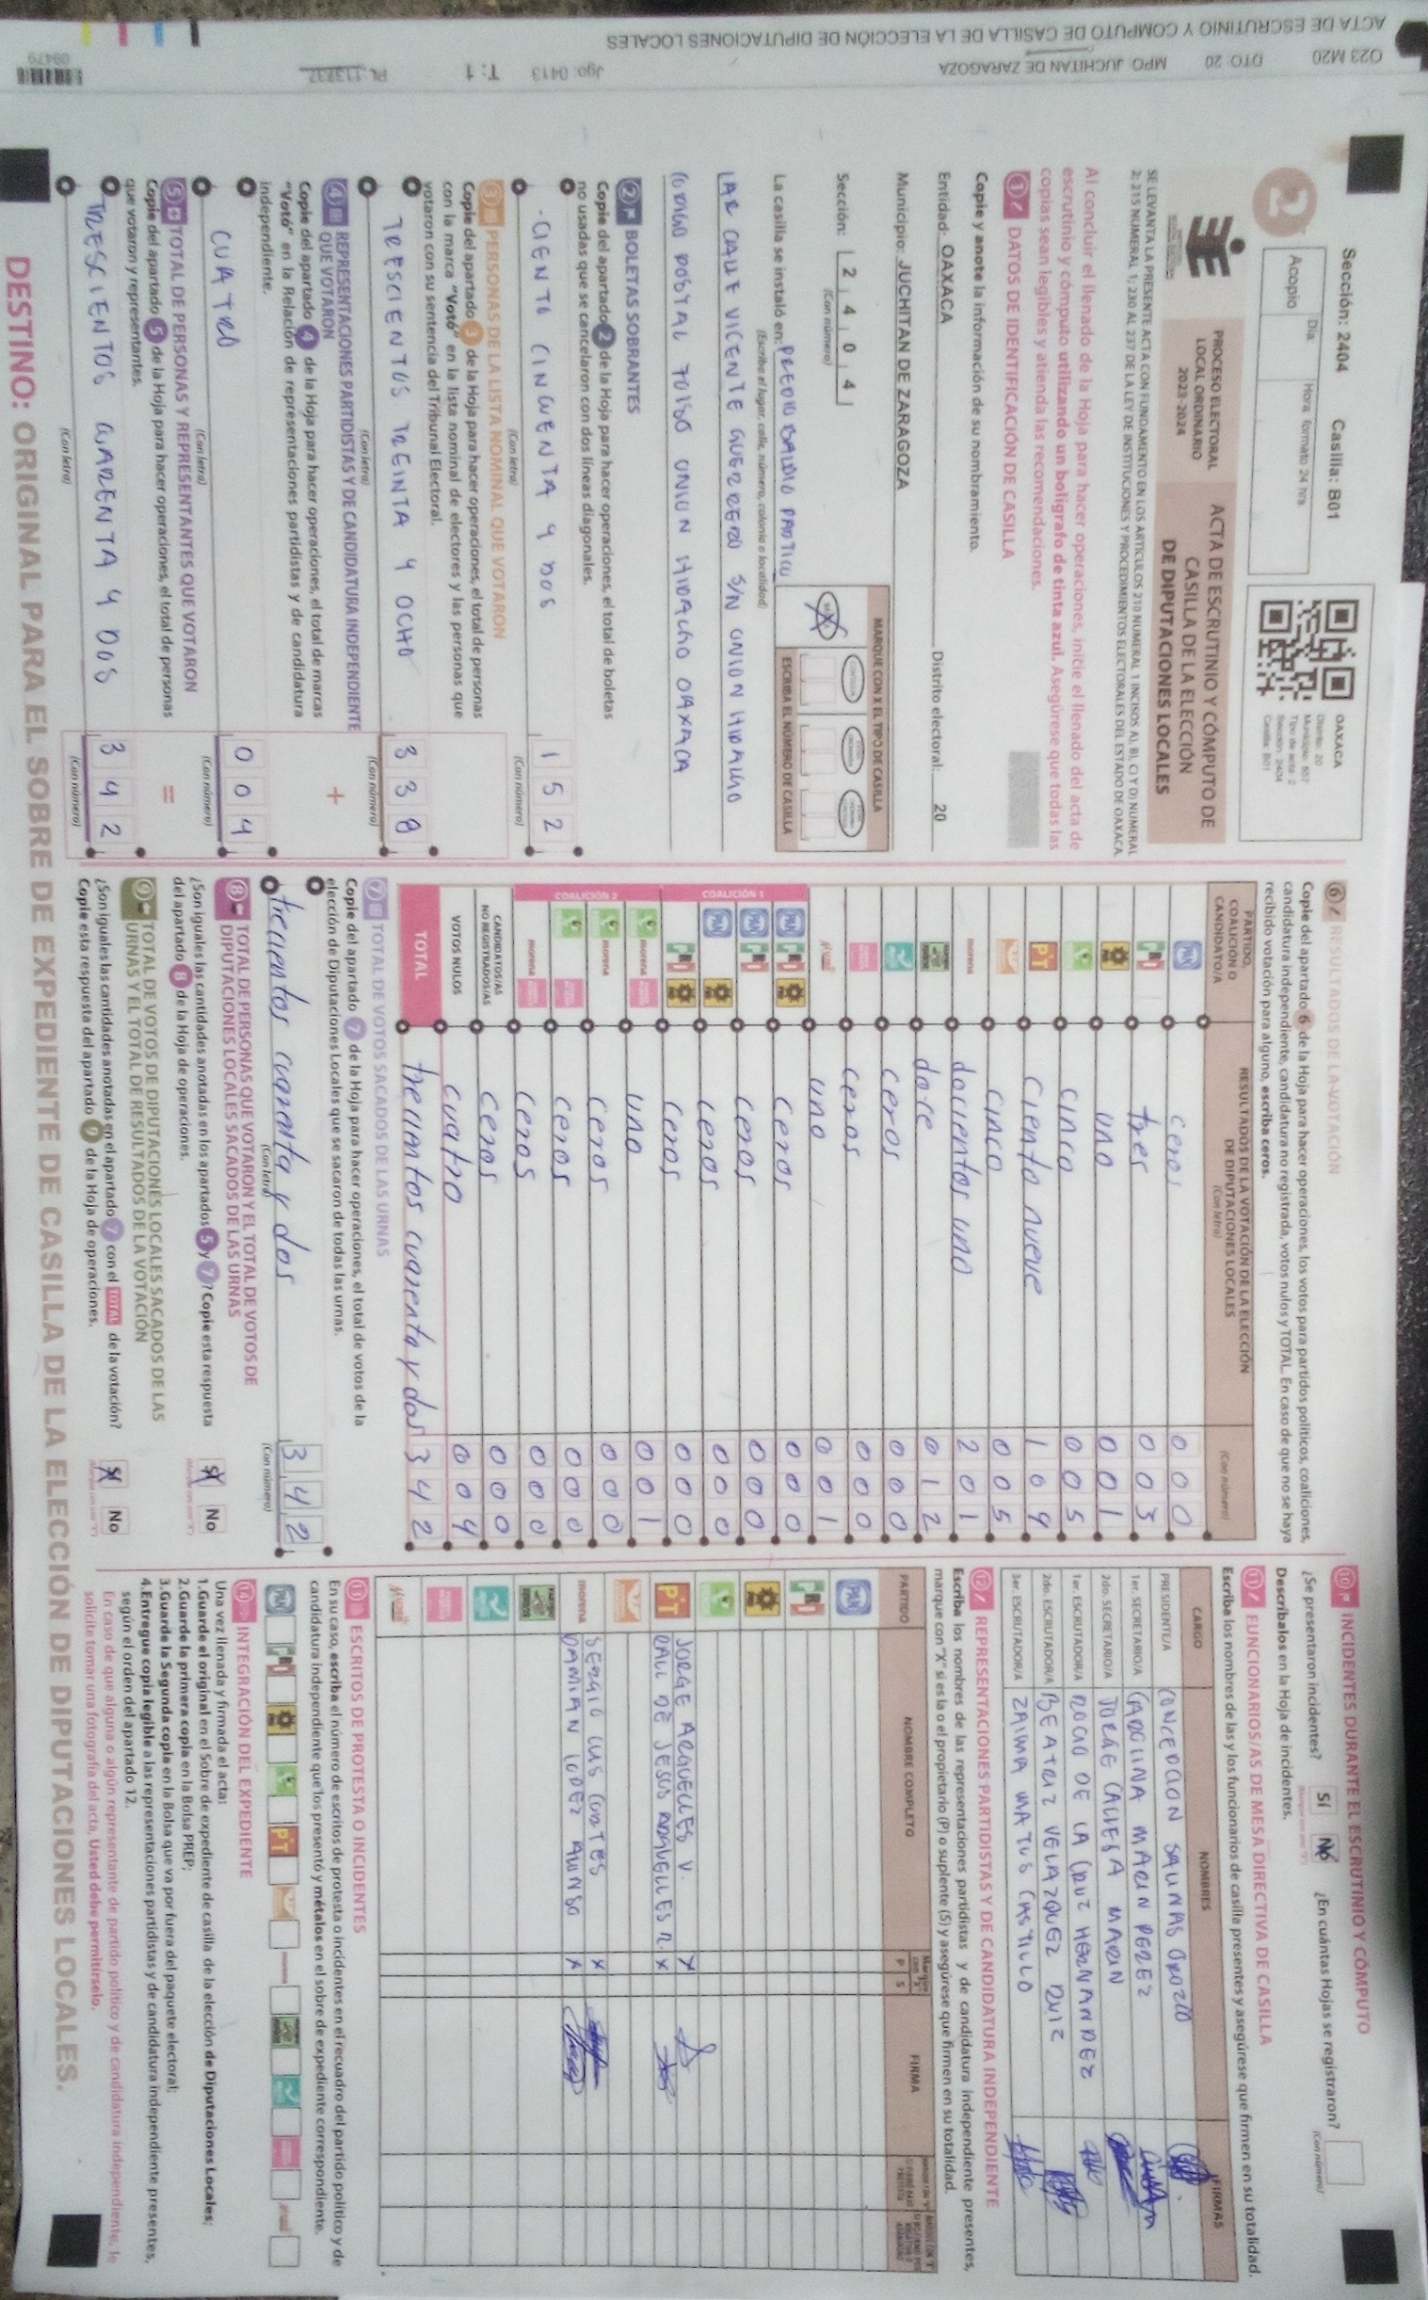 Sección: 2404 Casilla: B01
Día Hora formato 24 hrs
Acopio
OAXACA
Distrito: 20
Municipio: 557
Tipo de acta: 2
Sección: 2404
Casilla: B01
PROCESO ELECTORAL
LOCAL ORDINARIO
2023-2024
ACTA DE ESCRUTINIO Y CÓMPUTO DE
CASILLA DE LA ELECCIÓN
DE DIPUTACIONES LOCALES
SE LEVANTA LA PRESENTE ACTA CON FUNDAMENTO EN LOS ARTÍCULOS 210 NUMERAL 1 INCISOS A), B), C) Y D) NUMERAL
2; 215 NUMERAL 1; 230 AL 237 DE LA LEY DE INSTITUCIONES Y PROCEDIMIENTOS ELECTORALES DEL ESTADO DE OAXACA.
Al concluir el llenado de la Hoja para hacer operaciones, inicie el llenado del acta de
escrutinio y cómputo utilizando un bolígrafo de tinta azul. Asegúrese que todas las
copias sean legibles y atienda las recomendaciones.
1 DATOS DE IDENTIFICACIÓN DE CASILLA
Copie y anote la información de su nombramiento.
Entidad: OAXACA Distrito electoral: 20
Municipio: JUCHITAN DE ZARAGOZA
Sección: 2 4 0 4
(Con número)
MARQUE CON X EL TIPO DE CASILLA
ESCRIBA EL NÚMERO DE CASILLA
La casilla se instaló en: PREDIO BALDIO PARTICU
(Escriba el lugar, calle, número, colonia o localidad)
LAR CALLE VICENTE GUERRERO S/N UNION HIDALGO
CODIGO POSTAL 70150 UNION HIDALGO OAXACA
2 BOLETAS SOBRANTES
Copie del apartado 2 de la Hoja para hacer operaciones, el total de boletas
no usadas que se cancelaron con dos líneas diagonales.
CIENTO CINCUENTA Y DOS 1 5 2
(Con letra) (Con número)
3 PERSONAS DE LA LISTA NOMINAL QUE VOTARON
Copie del apartado 3 de la Hoja para hacer operaciones, el total de personas
con la marca "Votó" en la lista nominal de electores y las personas que
votaron con su sentencia del Tribunal Electoral.
TRESCIENTOS TREINTA Y OCHO 3 3 8
(Con letra) (Con número)
4 REPRESENTACIONES PARTIDISTAS Y DE CANDIDATURA INDEPENDIENTE
QUE VOTARON +
Copie del apartado 4 de la Hoja para hacer operaciones, el total de marcas
"Votó" en la Relación de representaciones partidistas y de candidatura
independiente.
CUATRO 0 0 4
(Con letra) (Con número)
5 TOTAL DE PERSONAS Y REPRESENTANTES QUE VOTARON =
Copie del apartado 5 de la Hoja para hacer operaciones, el total de personas
que votaron y representantes.
TRESCIENTOS CUARENTA Y DOS 3 4 2
(Con letra) (Con número)
6 RESULTADOS DE LA VOTACIÓN
Copie del apartado 6 de la Hoja para hacer operaciones, los votos para partidos políticos, coaliciones,
candidatura independiente, candidatura no registrada, votos nulos y TOTAL. En caso de que no se haya
recibido votación para alguno, escriba ceros.
PARTIDO, COALICIÓN O CANDIDATO/A
RESULTADOS DE LA VOTACIÓN DE LA ELECCIÓN
DE DIPUTACIONES LOCALES
(Con letra) (Con número)
PAN ceros 0 0 0
PRI tres 0 0 3
uno 0 0 1
cinco 0 0 5
PT ciento nueve 1 0 9
cinco 0 0 5
morena docientos uno 2 0 1
doce 0 1 2
ceros 0 0 0
ceros 0 0 0
uno 0 0 1
COALICIÓN 1
PAN PRI ceros 0 0 0
PAN PRI ceros 0 0 0
PAN ceros 0 0 0
PRI ceros 0 0 0
COALICIÓN 2
morena uno 0 0 1
morena ceros 0 0 0
ceros 0 0 0
morena ceros 0 0 0
CANDIDATOS/AS
NO REGISTRADOS/AS ceros 0 0 0
VOTOS NULOS cuatro 0 0 4
TOTAL trecientos cuarenta y dos 3 4 2
7 TOTAL DE VOTOS SACADOS DE LAS URNAS
Copie del apartado 7 de la Hoja para hacer operaciones, el total de votos de la
elección de Diputaciones Locales que se sacaron de todas las urnas.
trecientos cuarenta y dos 3 4 2
(Con letra) (Con número)
8 TOTAL DE PERSONAS QUE VOTARON Y EL TOTAL DE VOTOS DE
DIPUTACIONES LOCALES SACADOS DE LAS URNAS
¿Son iguales las cantidades anotadas en los apartados 5 y 7? Copie esta respuesta
del apartado 8 de la Hoja de operaciones. Sí No
9 TOTAL DE VOTOS DE DIPUTACIONES LOCALES SACADOS DE LAS
URNAS Y EL TOTAL DE RESULTADOS DE LA VOTACIÓN
¿Son iguales las cantidades anotadas en el apartado 7 con el TOTAL de la votación?
Copie esta respuesta del apartado 9 de la Hoja de operaciones. Sí No
10 INCIDENTES DURANTE EL ESCRUTINIO Y CÓMPUTO
¿Se presentaron incidentes? Sí No ¿En cuántas Hojas se registraron?
(Con número)
Descríbalos en la Hoja de incidentes.
11 FUNCIONARIOS/AS DE MESA DIRECTIVA DE CASILLA
Escriba los nombres de las y los funcionarios de casilla presentes y asegúrese que firmen en su totalidad.
CARGO NOMBRES FIRMAS
PRESIDENTE/A CONCEPCION SALINAS OROZCO
1er. SECRETARIO/A CAROLINA MARIN PEREZ
2do. SECRETARIO/A JORGE MARIN
1er. ESCRUTADOR/A ROCIO DE LA CRUZ HERNANDEZ
2do. ESCRUTADOR/A BEATRIZ VELAZQUEZ RUIZ
3er. ESCRUTADOR/A ZAIMA MATUS CASTILLO
12 REPRESENTACIONES PARTIDISTAS Y DE CANDIDATURA INDEPENDIENTE
Escriba los nombres de las representaciones partidistas y de candidatura independiente presentes,
marque con "X" si es la o el propietario (P) o suplente (S) y asegúrese que firmen en su totalidad.
PARTIDO NOMBRE COMPLETO P S FIRMA
PAN
PRI
PT JORGE ARGUELLES V. X
DE JESUS ARGUELLES R. X
morena SERGIO LUIS CORTES X
DAMIAN LOPEZ X
13 ESCRITOS DE PROTESTA O INCIDENTES
En su caso, escriba el número de escritos de protesta o incidentes en el recuadro del partido político y de
candidatura independiente que los presentó y métalos en el sobre de expediente correspondiente.
14 INTEGRACIÓN DEL EXPEDIENTE
Una vez llenada y firmada el acta:
1.Guarde el original en el Sobre de expediente de casilla de la elección de Diputaciones Locales;
2.Guarde la primera copia en la Bolsa PREP;
3.Guarde la Segunda copia en la Bolsa que va por fuera del paquete electoral;
4.Entregue copia legible a las representaciones partidistas y de candidatura independiente presentes,
según el orden del apartado 12.
En caso de que alguna o algún representante de partido político y de candidatura independiente, le
solicite tomar una fotografía del acta, Usted debe permitírselo.
DESTINO: ORIGINAL PARA EL SOBRE DE EXPEDIENTE DE CASILLA DE LA ELECCIÓN DE DIPUTACIONES LOCALES.
O23 M20 DTO: 20 MPO: JUCHITAN DE ZARAGOZA
Jgo: 0413 T: 1 PL: 113237 09479
ACTA DE ESCRUTINIO Y COMPUTO DE CASILLA DE LA ELECCIÓN DE DIPUTACIONES LOCALES